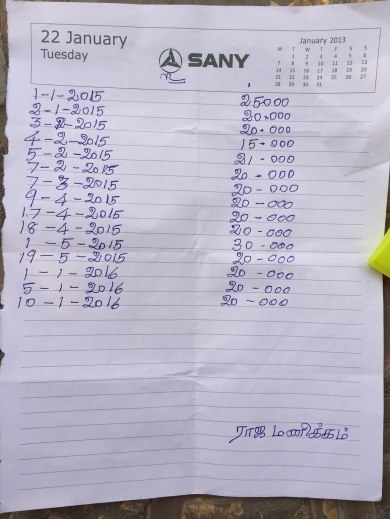 22 January
Tuesday
SANY
January 2013
M T W T F S S
1 2 3 4 5 6
7 8 9 10 11 12 13
14 15 16 17 18 19 20
21 22 23 24 25 26 27
28 29 30 31
1-1-2015 25000
2-1-2015 20.000
3-2-2015 20.000
4-2-2015 15-000
5-2-2015 21-000
7-2-2015 20-000
7-3-2015 20-000
9-4-2015 20-000
17-4-2015 20-000
18-4-2015 20-000
1-5-2015 30-000
19-5-2015 20-000
1-1-2016 20-000
5-1-2016 20-000
10-1-2016 20-000
ராஜ மணிக்கம்